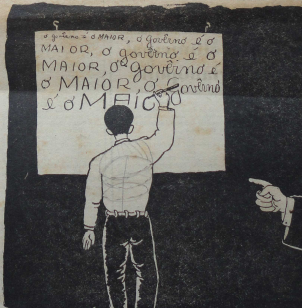 o governo é o MAIOR, o governo é o
MAIOR, o governo é o
MAIOR, o governo é
o MAIOR o governo
é o MAIO